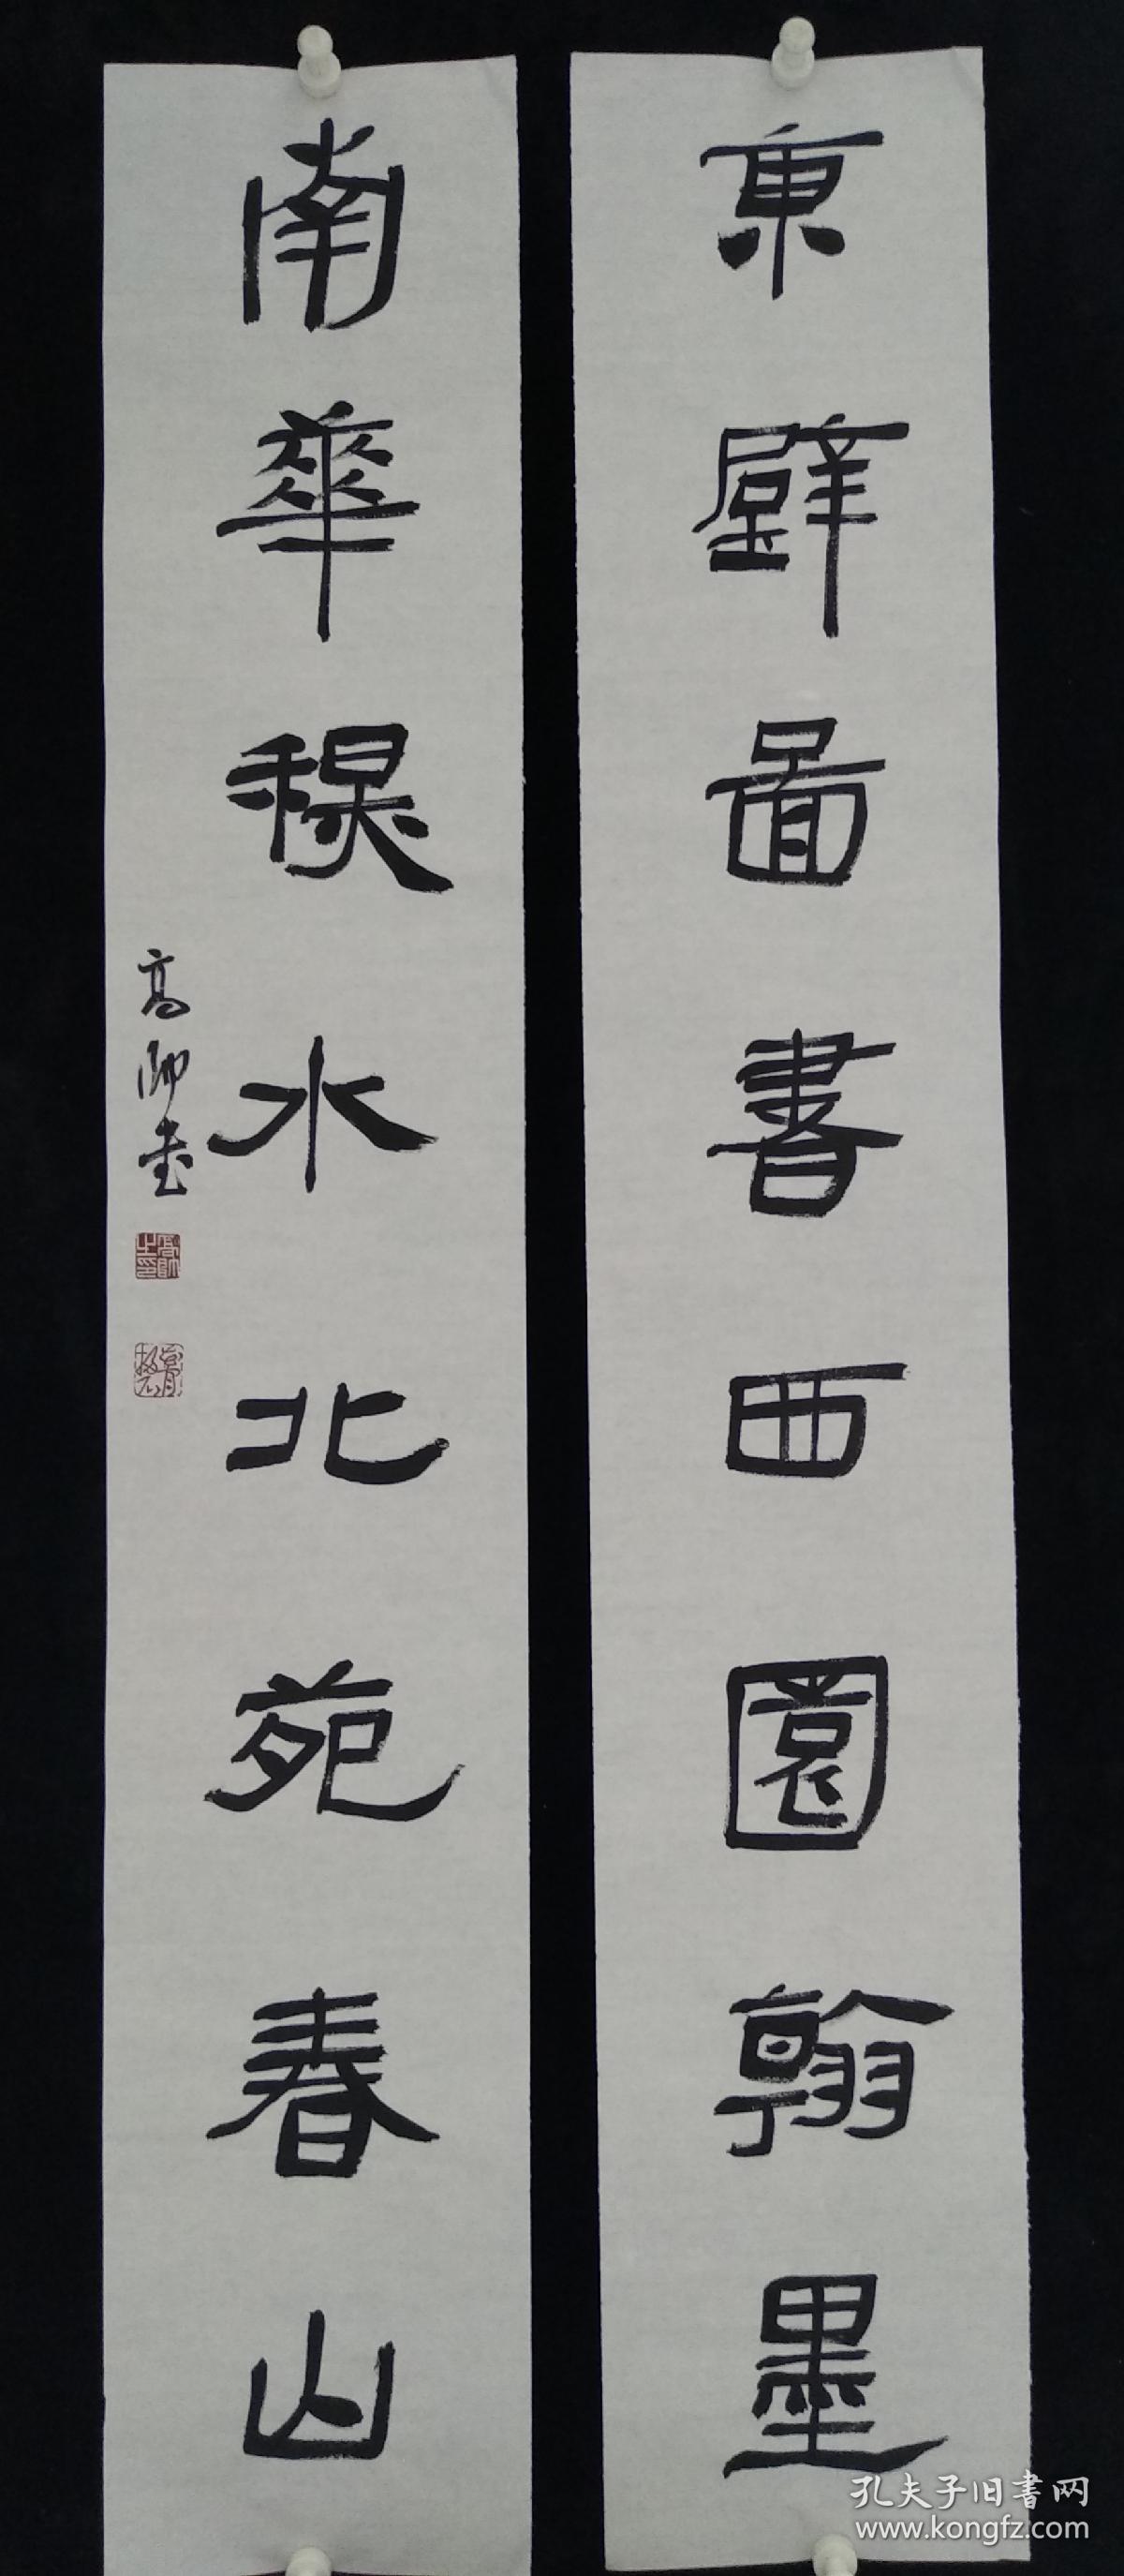 東壁啚書西園翰墨
南華秋水北苑春山
高帥書
高帥之印
孔夫子旧書网
www.kongfz.com